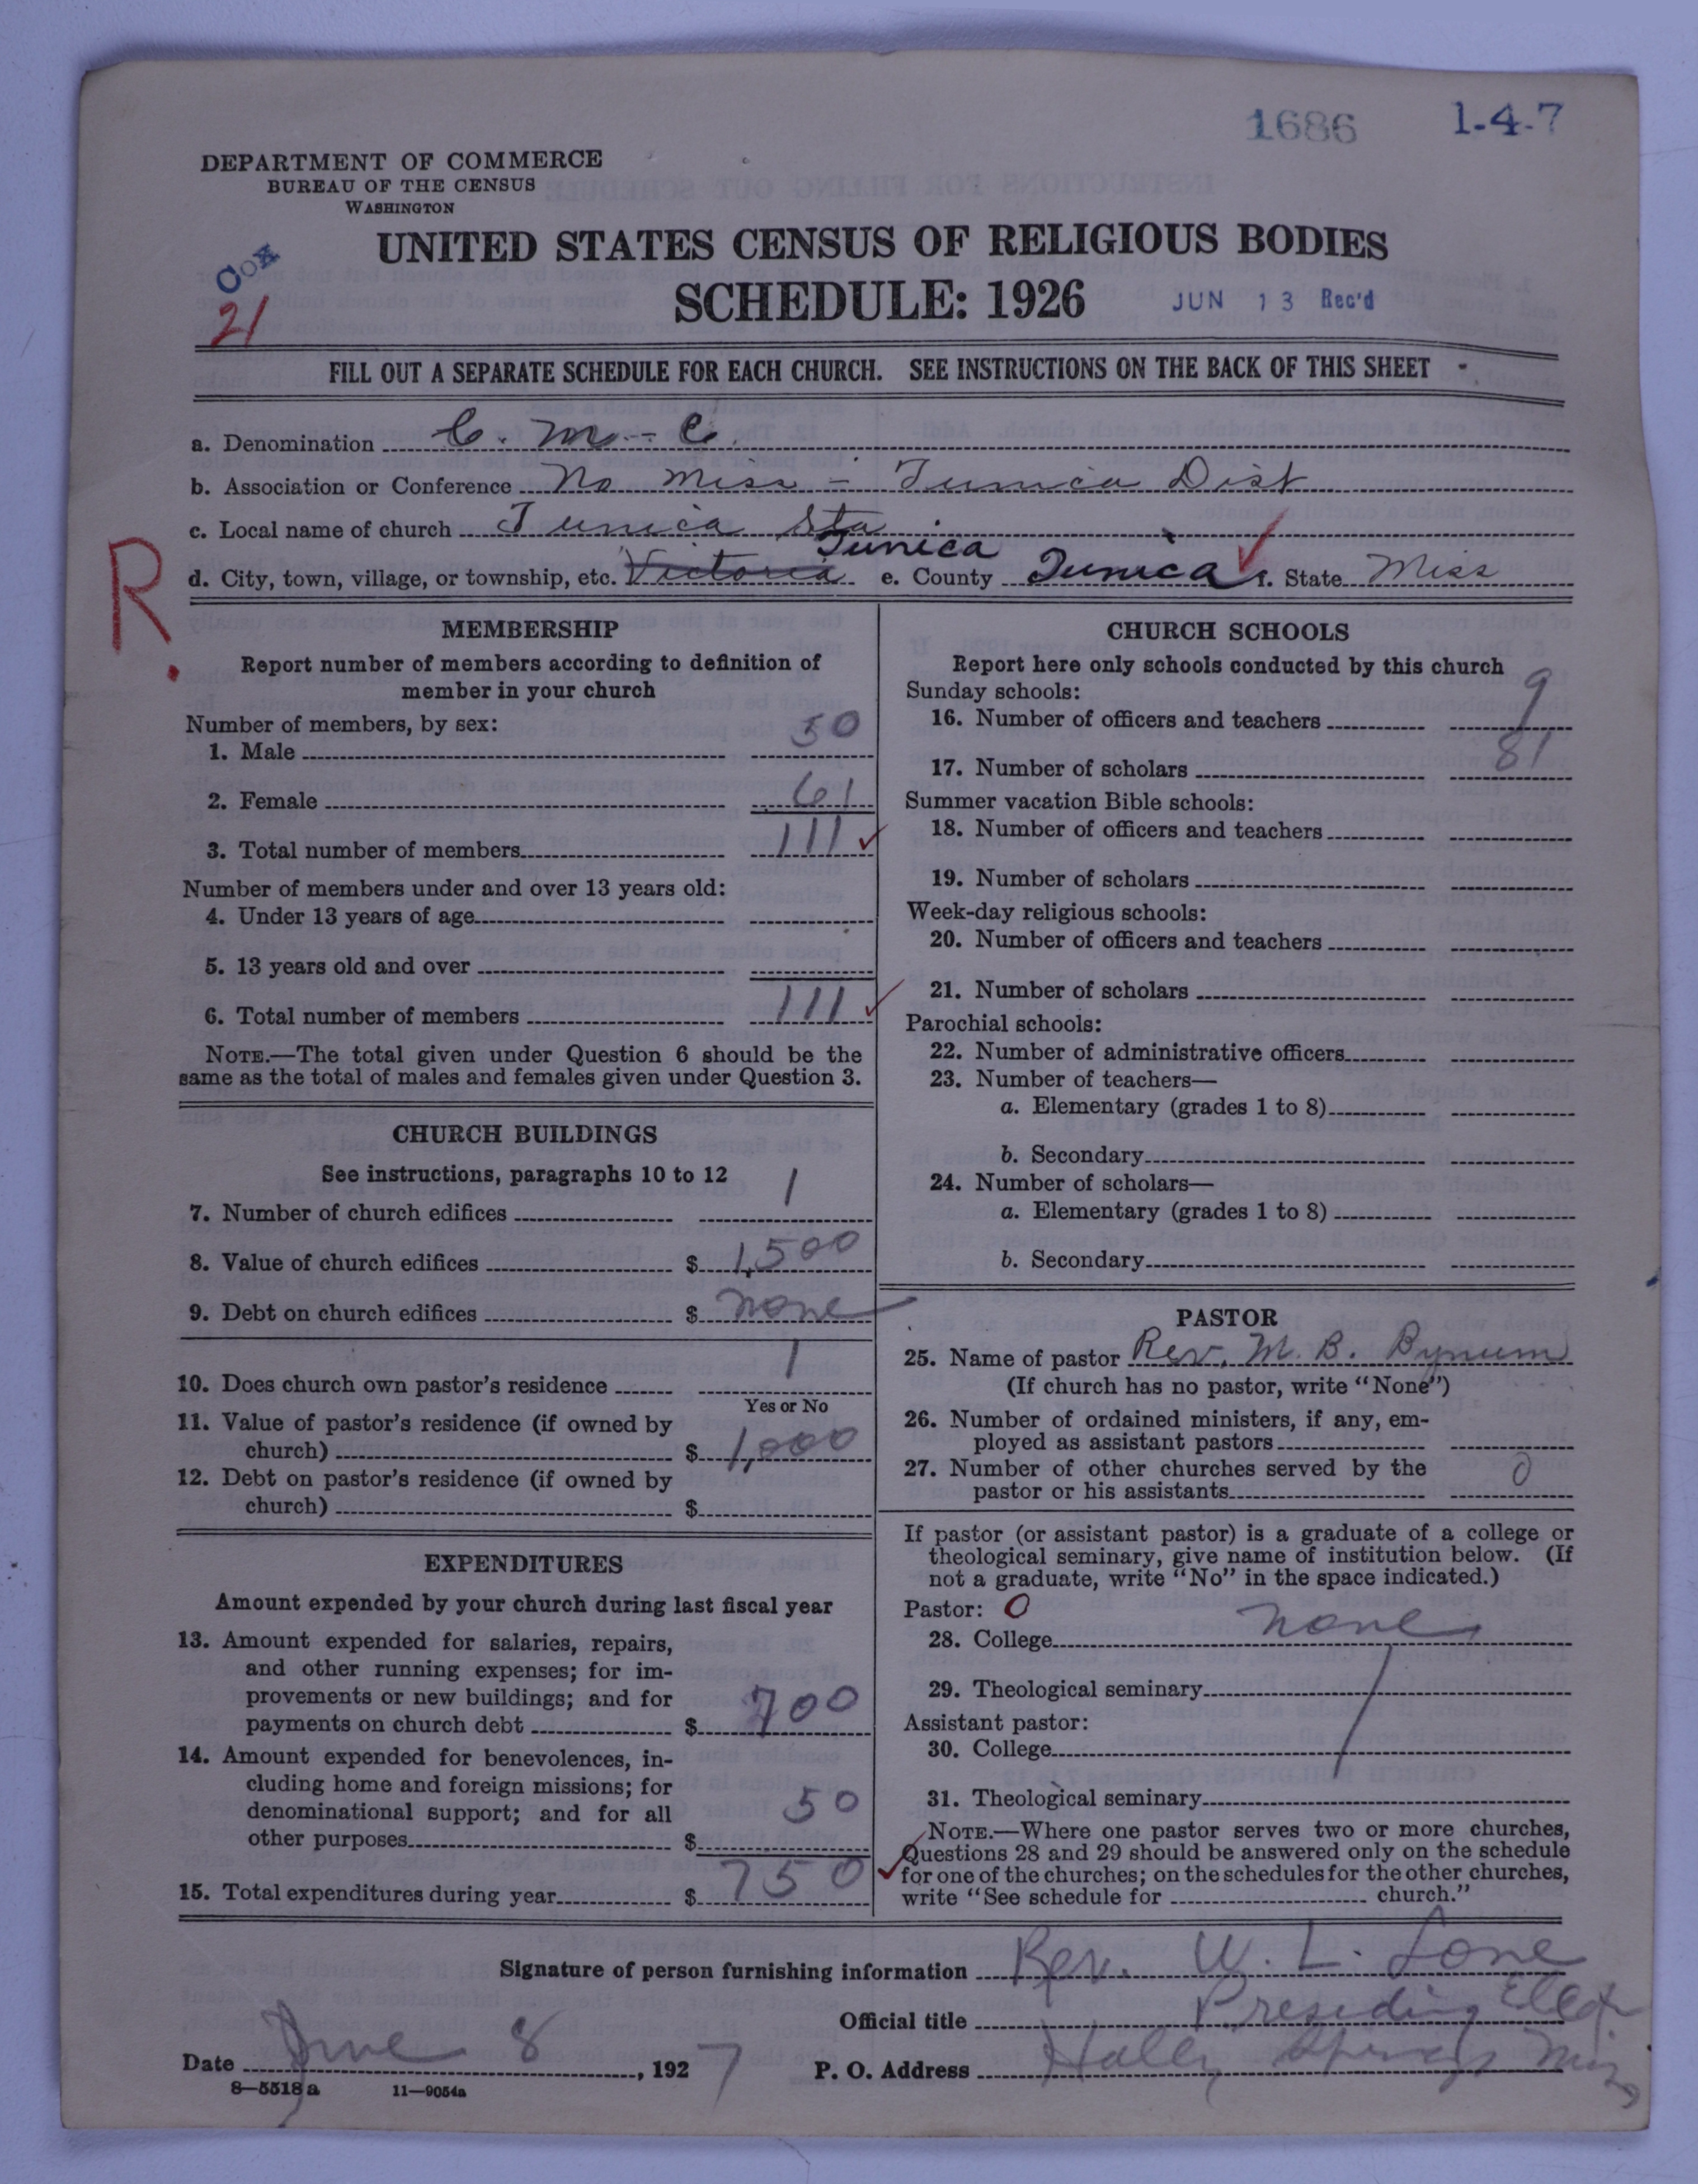 1686 1-4-7
DEPARTMENT OF COMMERCE
BUREAU OF THE CENSUS
WASHINGTON
UNITED STATES CENSUS OF RELIGIOUS BODIES
Cox
SCHEDULE: 1926 JUN 13 Rec'd
21
FILL OUT A SEPARATE SCHEDULE FOR EACH CHURCH. SEE INSTRUCTIONS ON THE BACK OF THIS SHEET
a. Denomination C. M. - C.
b. Association or Conference No Miss - Tunica Dist
c. Local name of church Tunica Sta
Tunica
d. City, town, village, or township, etc. Victoria e. County Tunica f. State Miss
R.
MEMBERSHIP
Report number of members according to definition of
member in your church
Number of members, by sex:
1. Male 50
2. Female 61
3. Total number of members 111
Number of members under and over 13 years old:
4. Under 13 years of age
5. 13 years old and over
6. Total number of members 111
NOTE.—The total given under Question 6 should be the
same as the total of males and females given under Question 3.
CHURCH BUILDINGS
See instructions, paragraphs 10 to 12
7. Number of church edifices 1
8. Value of church edifices $ 1,500
9. Debt on church edifices $ none
10. Does church own pastor's residence 1
Yes or No
11. Value of pastor's residence (if owned by
church) $ 1,000
12. Debt on pastor's residence (if owned by
church) $
EXPENDITURES
Amount expended by your church during last fiscal year
13. Amount expended for salaries, repairs,
and other running expenses; for im-
provements or new buildings; and for
payments on church debt $ 700
14. Amount expended for benevolences, in-
cluding home and foreign missions; for
denominational support; and for all
other purposes $ 50
15. Total expenditures during year $ 750
CHURCH SCHOOLS
Report here only schools conducted by this church
Sunday schools:
16. Number of officers and teachers 9
17. Number of scholars 81
Summer vacation Bible schools:
18. Number of officers and teachers
19. Number of scholars
Week-day religious schools:
20. Number of officers and teachers
21. Number of scholars
Parochial schools:
22. Number of administrative officers
23. Number of teachers—
a. Elementary (grades 1 to 8)
b. Secondary
24. Number of scholars—
a. Elementary (grades 1 to 8)
b. Secondary
PASTOR
25. Name of pastor Rev. M. B. Bynum
(If church has no pastor, write "None")
26. Number of ordained ministers, if any, em-
ployed as assistant pastors
27. Number of other churches served by the
pastor or his assistants 0
If pastor (or assistant pastor) is a graduate of a college or
theological seminary, give name of institution below. (If
not a graduate, write "No" in the space indicated.)
Pastor: 0
28. College none
29. Theological seminary
Assistant pastor:
30. College
31. Theological seminary
NOTE.—Where one pastor serves two or more churches,
Questions 28 and 29 should be answered only on the schedule
for one of the churches; on the schedules for the other churches,
write "See schedule for church."
Signature of person furnishing information Rev. W. L. Lone
Official title Presiding Elder
Date June 8, 1927 P. O. Address Holly Springs Miss
8—5518a 11—9054a